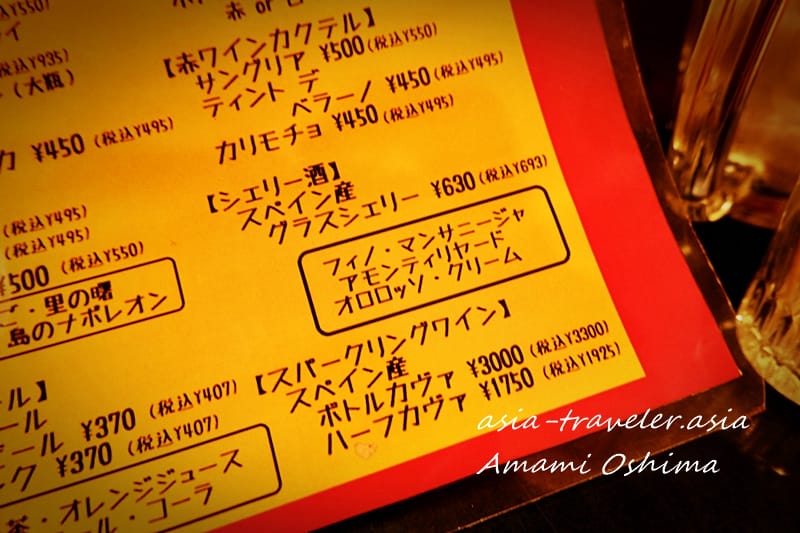 ¥550)
赤 or 白
イ
税込¥935)
(大瓶)
カ ¥450 (税込¥495)
(税込¥495)
(税込¥495)
¥500 (税込¥550)
・里の曙
島のナポレオン
ール】
ール
ビール ¥370 (税込¥407)
ニク ¥370 (税込¥407)
茶・オレンジジュース
ール・コーラ
【赤ワインカクテル】
サングリア ¥500(税込¥550)
ティント デ
ベラーノ ¥450(税込¥495)
カリモチョ ¥450(税込¥495)
【シェリー酒】
スペイン産
グラスシェリー ¥630(税込¥693)
フィノ・マンサニージャ
アモンティリヤード
オロロッソ・クリーム
【スパークリングワイン】
スペイン産
ボトルカヴァ ¥3000 (税込¥3300)
ハーフカヴァ ¥1750 (税込¥1925)
asia-traveler.asia
Amami Oshima